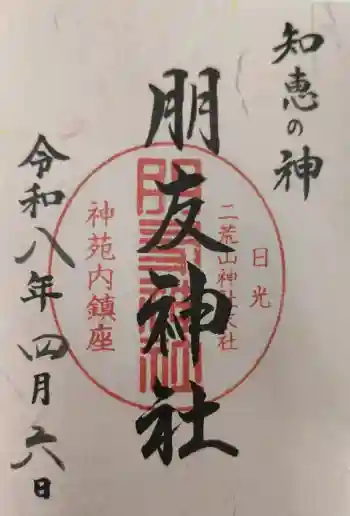 知恵の神
朋友神社
日光
二荒山神社末社
神苑内鎮座
朋友神社
令和八年四月六日